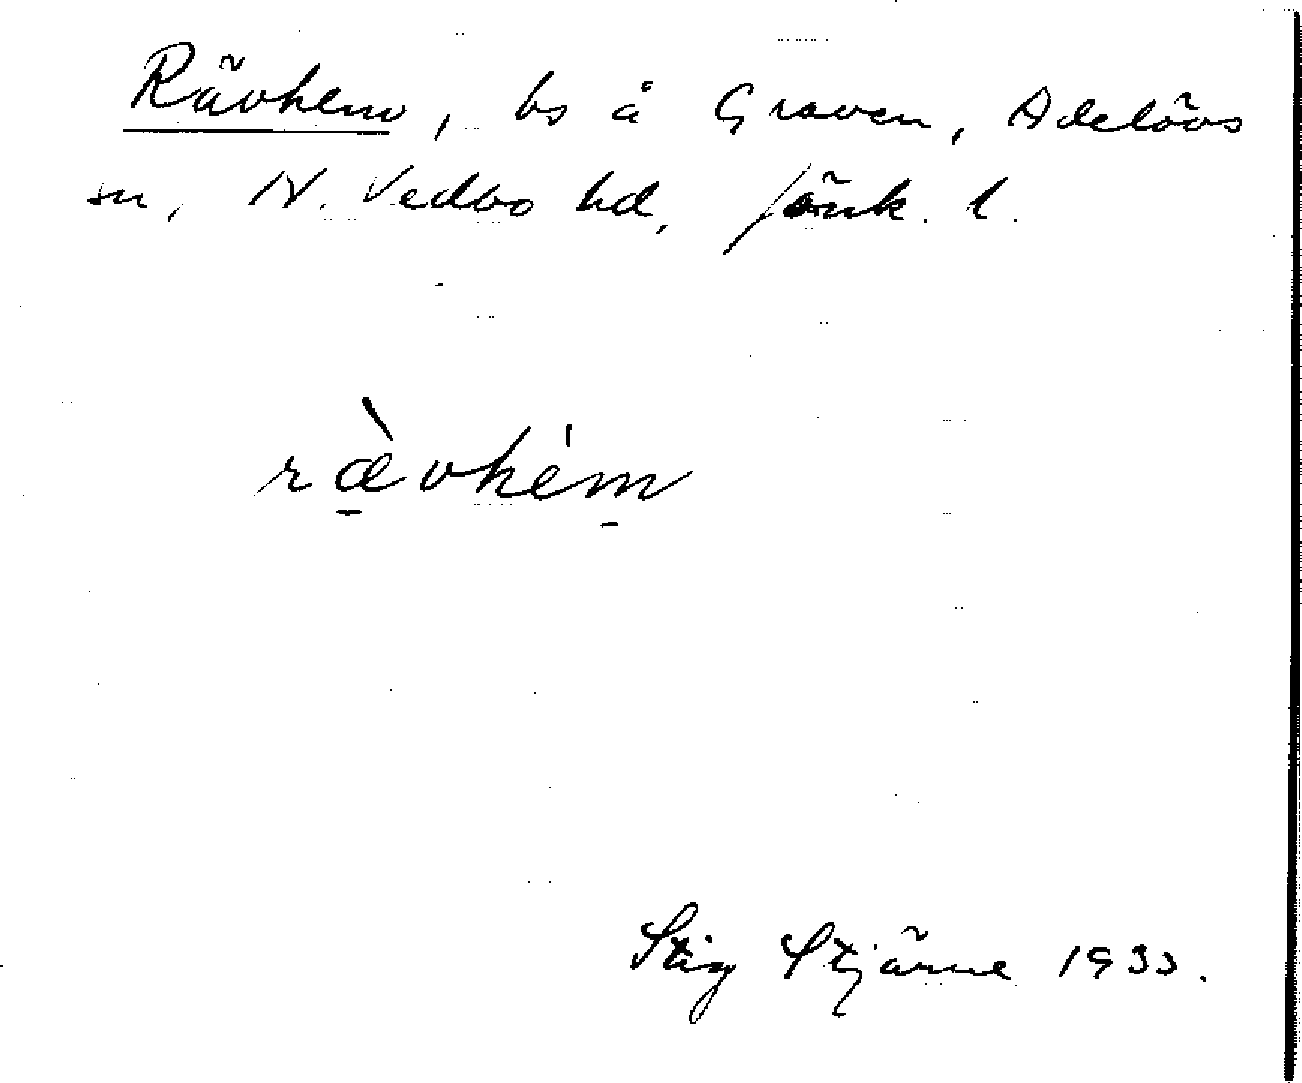 Rävhem, bs å Graven, Adelövs
sn, N. Vedbo hd, Jönk. l.
ræ̠̀vhém̠
Stig Stjärne 1933.